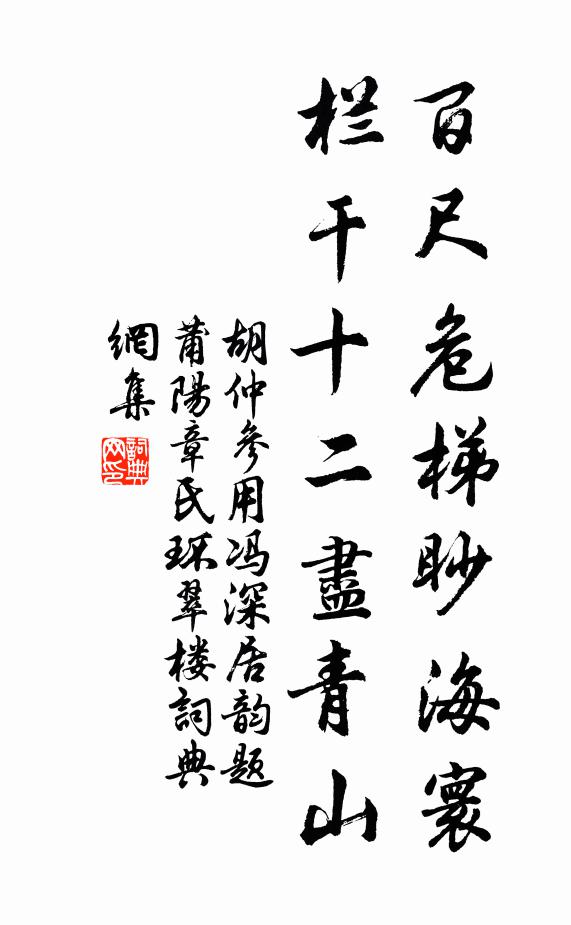 百尺危梯眇海寰
栏干十二盡青山
胡仲参用冯深居韵题
莆陽章氏环翠楼詞典
網集
詞典網印